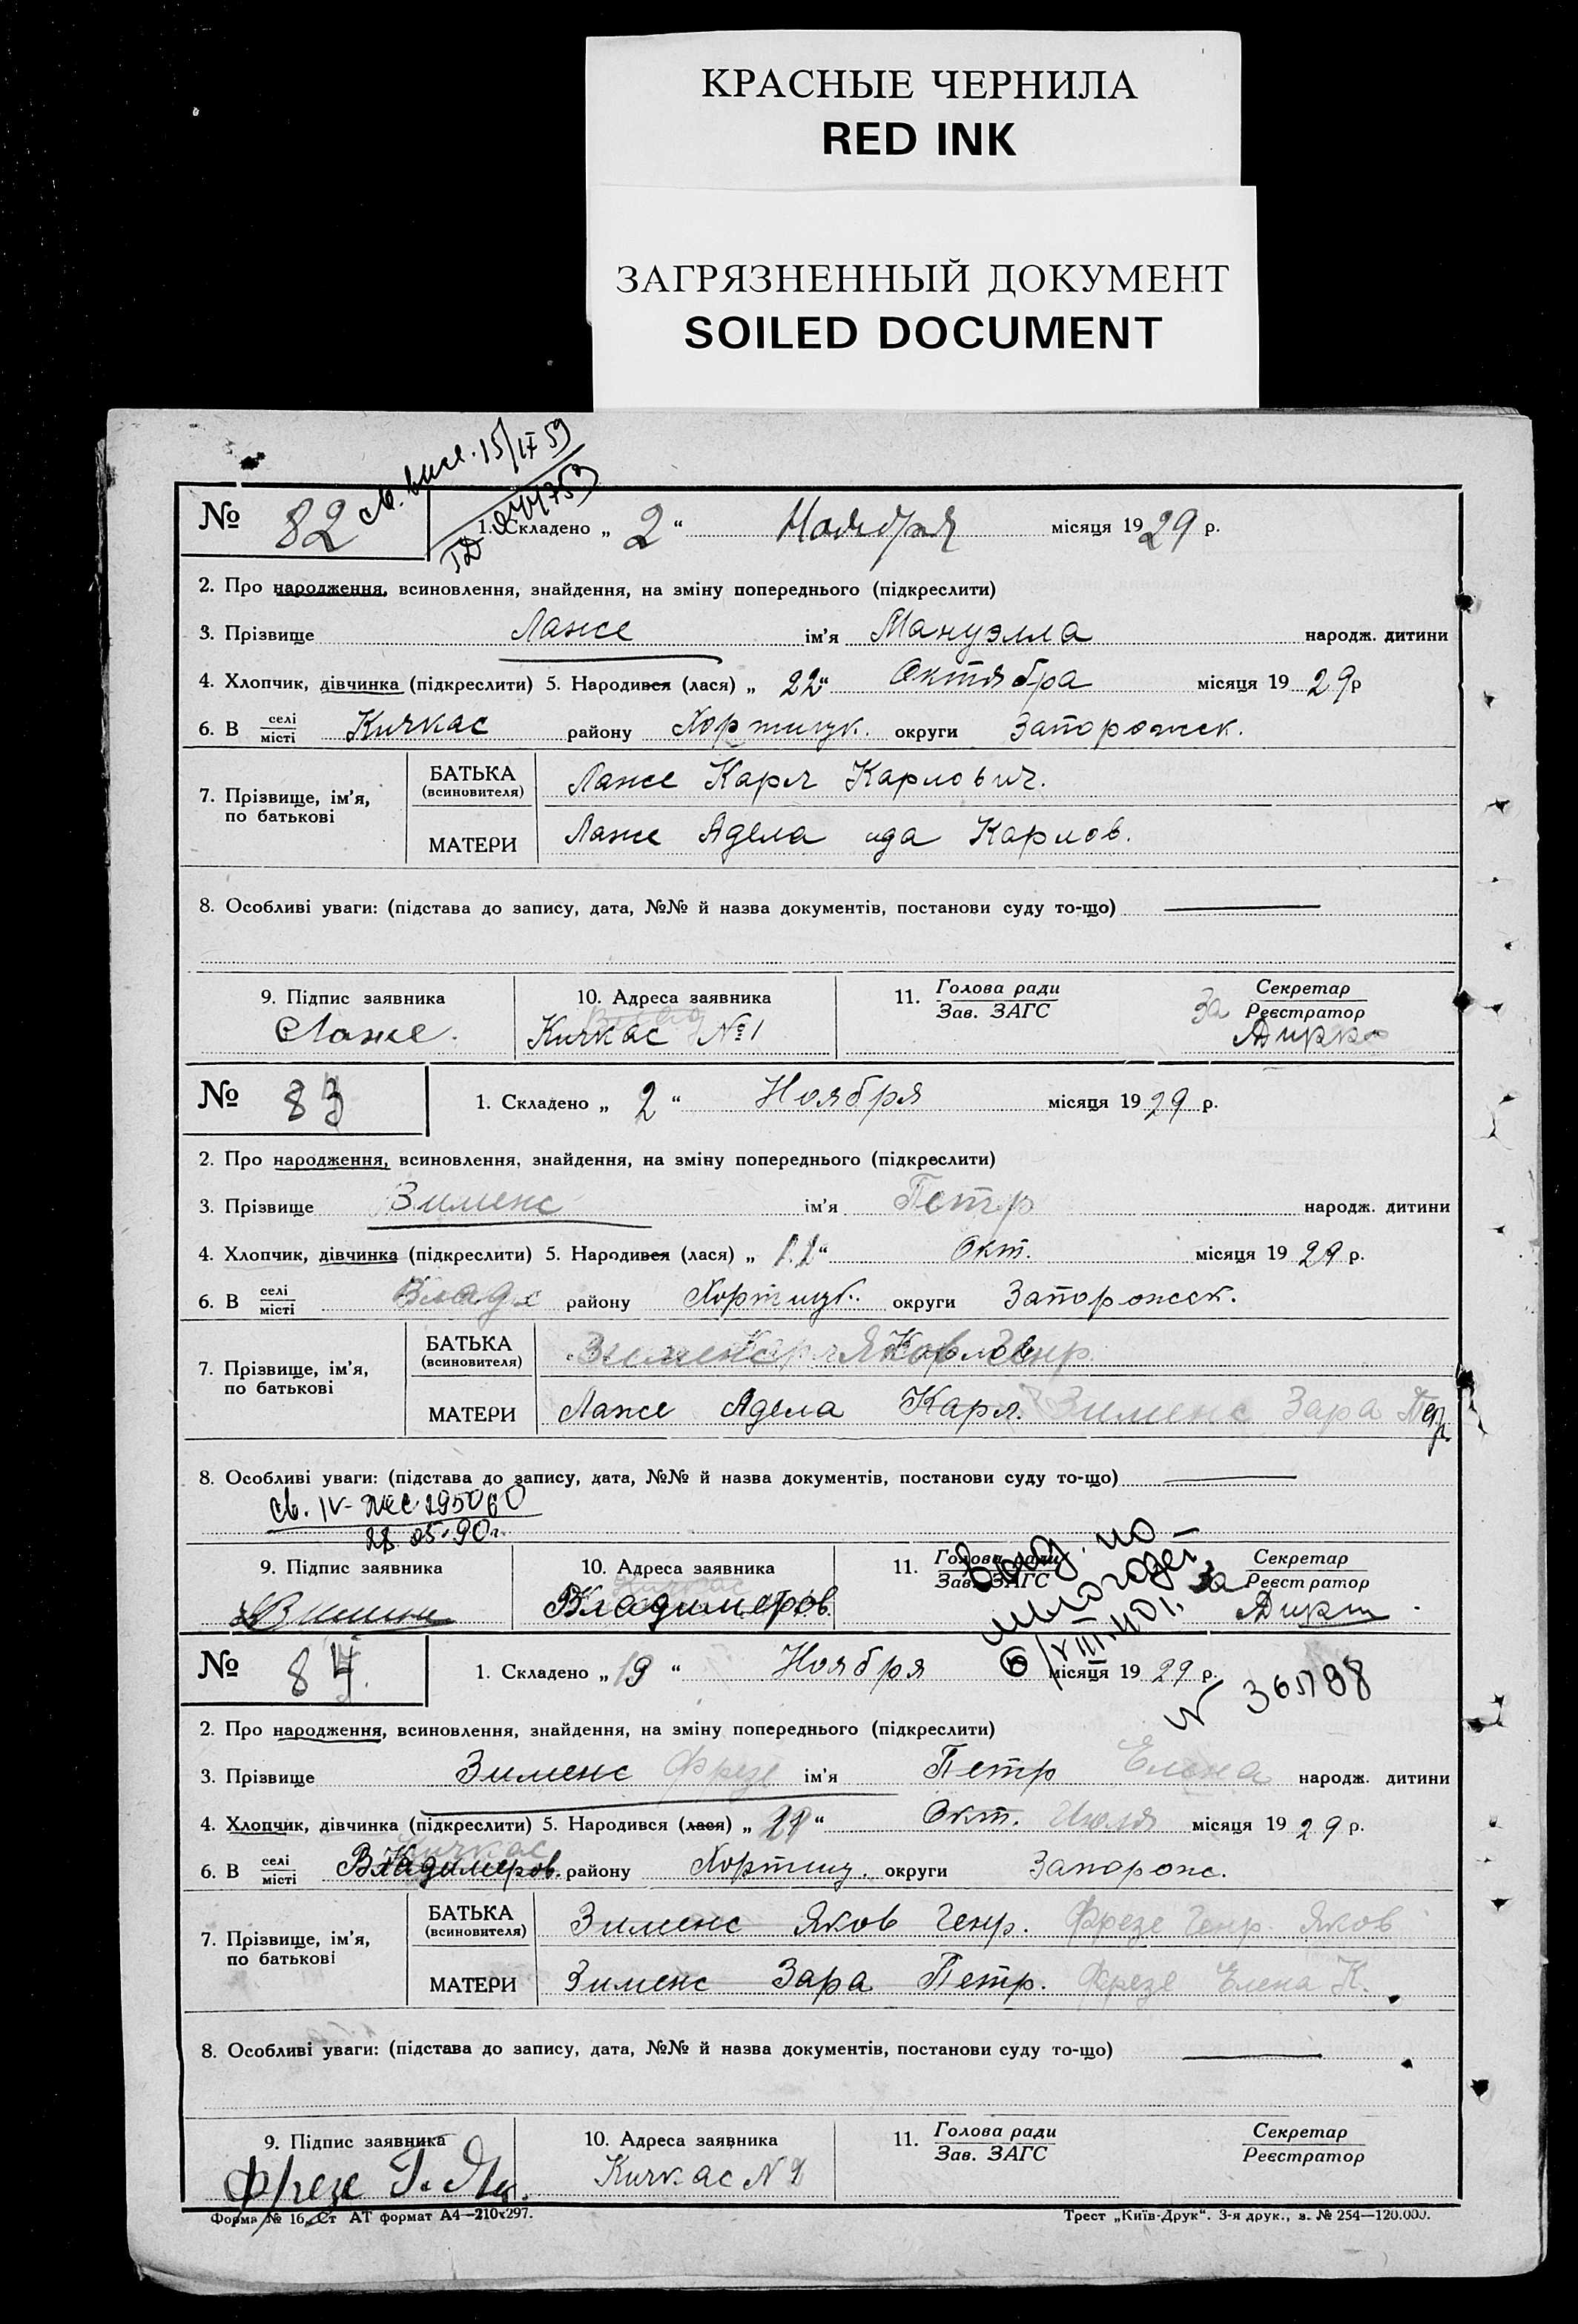 КРАСНЫЕ ЧЕРНИЛА
RED INK
ЗАГРЯЗНЕННЫЙ ДОКУМЕНТ
SOILED DOCUMENT
15/IX 59
№ 82 1. Складено „ 2 “ Ноября місяця 1929 р.
2. Про народження, всиновлення, знайдення, на зміну попереднього (підкреслити)
3. Прізвище Лаже ім’я Мануэлла народж. дитини
4. Хлопчик, дівчинка (підкреслити) 5. Народився (лася) „ 22 “ Октября місяця 1929 р
6. В селі/місті Кичкас району Хортицк. округи Запорожск.
7. Прізвище, ім’я, по батькові
БАТЬКА (всиновителя) Лаже Карл Карлович.
МАТЕРИ Лаже Адела ида Карлов.
8. Особливі уваги: (підстава до запису, дата, №№ й назва документів, постанови суду то-що)
9. Підпис заявника 10. Адреса заявника 11. Голова ради/Зав. ЗАГС За Секретар/Реєстратор
Лаже. Кичкас №1
№ 83 1. Складено „ 2 “ Ноября місяця 1929 р.
2. Про народження, всиновлення, знайдення, на зміну попереднього (підкреслити)
3. Прізвище Зименс ім’я Петр народж. дитини
4. Хлопчик, дівчинка (підкреслити) 5. Народився (лася) „ “ Окт. місяця 1929 р.
6. В селі/місті району Хортицк. округи Запорожск.
7. Прізвище, ім’я, по батькові
БАТЬКА (всиновителя) Зименс Яков Генр.
МАТЕРИ Лаже Адела Карл. Зименс Зара Петр.
8. Особливі уваги: (підстава до запису, дата, №№ й назва документів, постанови суду то-що)
9. Підпис заявника 10. Адреса заявника 11. Голова ради/Зав. ЗАГС За Секретар/Реєстратор
Владимеров.
6/VIII
№ 84. 1. Складено „ 19 “ Ноября місяця 1929 р.
2. Про народження, всиновлення, знайдення, на зміну попереднього (підкреслити)
3. Прізвище Зименс Фрезе ім’я Петр Елена народж. дитини
4. Хлопчик, дівчинка (підкреслити) 5. Народився (лася) „ “ Окт. Июля місяця 1929 р.
6. В селі/місті Владимеров. Кичкас району Хортиц. округи Запорож.
7. Прізвище, ім’я, по батькові
БАТЬКА (всиновителя) Зименс Яков Генр. Фрезе Генр. Яков
МАТЕРИ Зименс Зара Петр. Фрезе Елена К.
8. Особливі уваги: (підстава до запису, дата, №№ й назва документів, постанови суду то-що)
9. Підпис заявника 10. Адреса заявника 11. Голова ради/Зав. ЗАГС Секретар/Реєстратор
Фрезе Г. Як. Кичкас N
Форма № 16. Ст АТ формат А4—210х297. Трест „Київ-Друк“. 3-я друк., з. № 254—120.000.